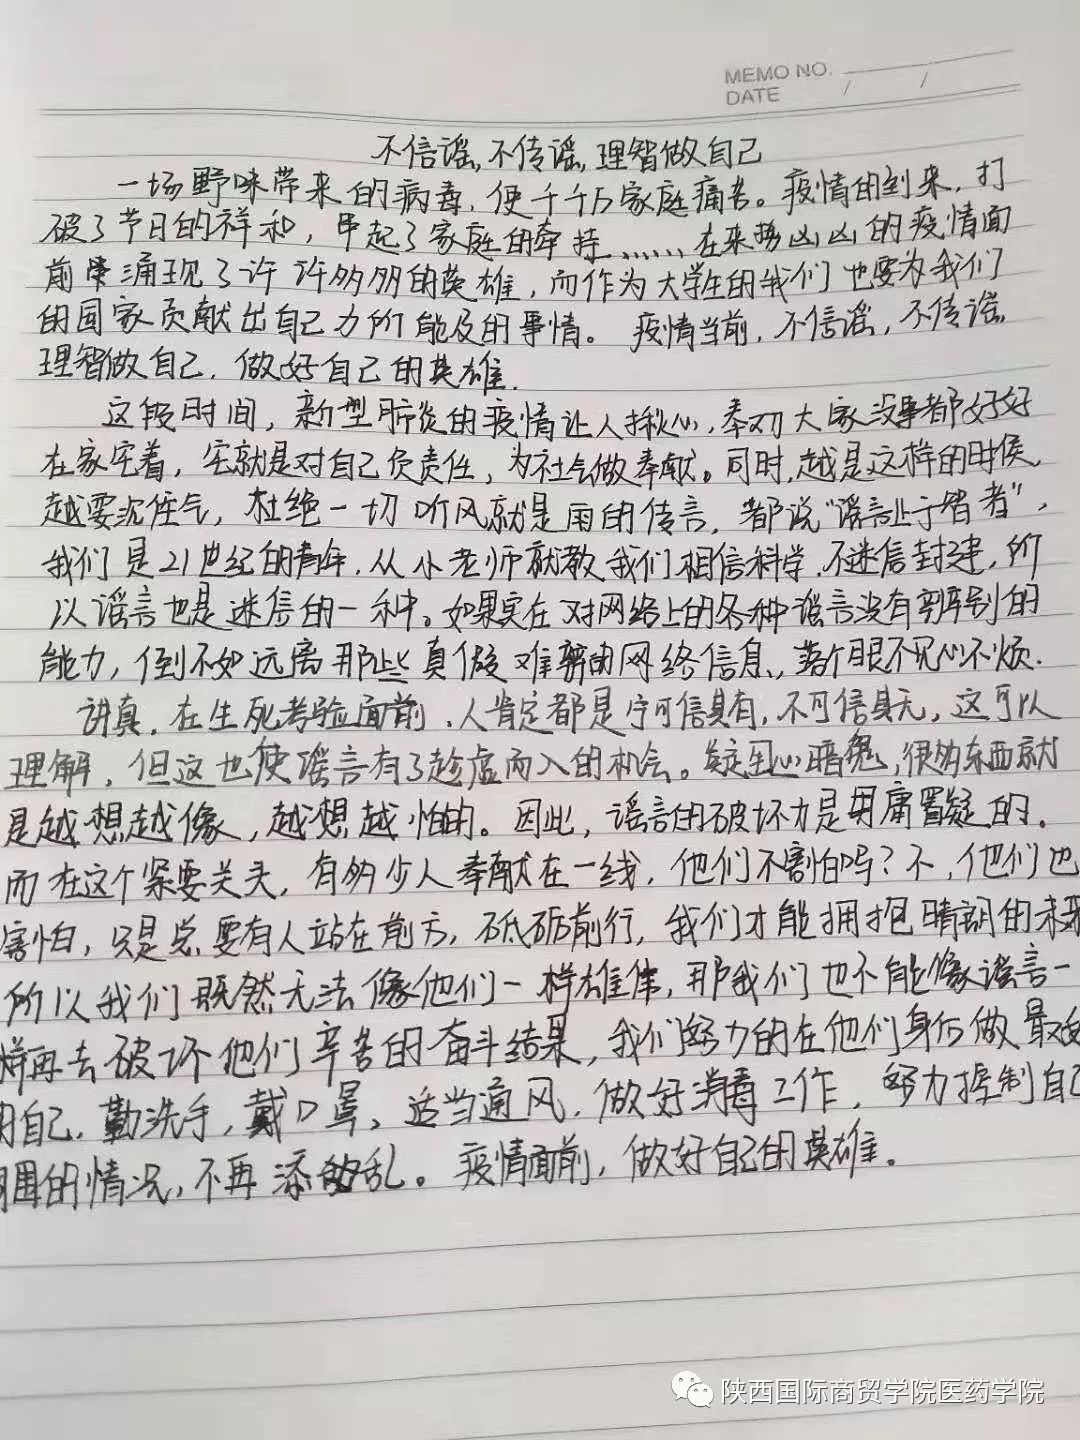 MEMO NO.
DATE / /
不信谣,不传谣,理智做自己
一场野味带来的病毒,使千千万家庭痛苦。疫情的到来,打
破了节日的祥和,牵起了家庭的牵挂......在来势凶凶的疫情面
前涌现了许许多多的英雄,而作为大学生的我们也要为我们
的国家贡献出自己力所能及的事情。疫情当前,不信谣,不传谣,
理智做自己,做好自己的英雄.
这段时间,新型肺炎的疫情让人揪心,奉劝大家没事都好好
在家宅着,宅就是对自己负责任,为社会做奉献。同时,越是这样的时候,
越要沉住气,杜绝一切听风就是雨的传言,都说“谣言止于智者”,
我们是21世纪的青年,从小老师就教我们相信科学,不迷信封建,所
以谣言也是迷信的一种。如果实在对网络上的各种谣言没有辨别的
能力,倒不如远离那些真假难辨的网络信息,落个眼不见心不烦.
讲真,在生死考验面前,人肯定都是宁可信其有,不可信其无,这可以
理解,但这也使谣言有了趁虚而入的机会。疑心暗鬼,很多东西就
是越想越像,越想越怕的。因此,谣言的破坏力是毋庸置疑的。
而在这个紧要关头,有多少人奉献在一线,他们不害怕吗?不,他们也
害怕,只是总要有人站在前方,砥砺前行,我们才能拥抱晴朗的未来
所以我们既然无法像他们一样雄伟,那我们也不能像谣言一
样再去破坏他们辛苦的奋斗结果,我们努力的在他们身后做最好
的自己,勤洗手,戴口罩,适当通风,做好消毒工作,努力控制自己
周围的情况,不再添乱。疫情面前,做好自己的英雄.
陕西国际商贸学院医药学院